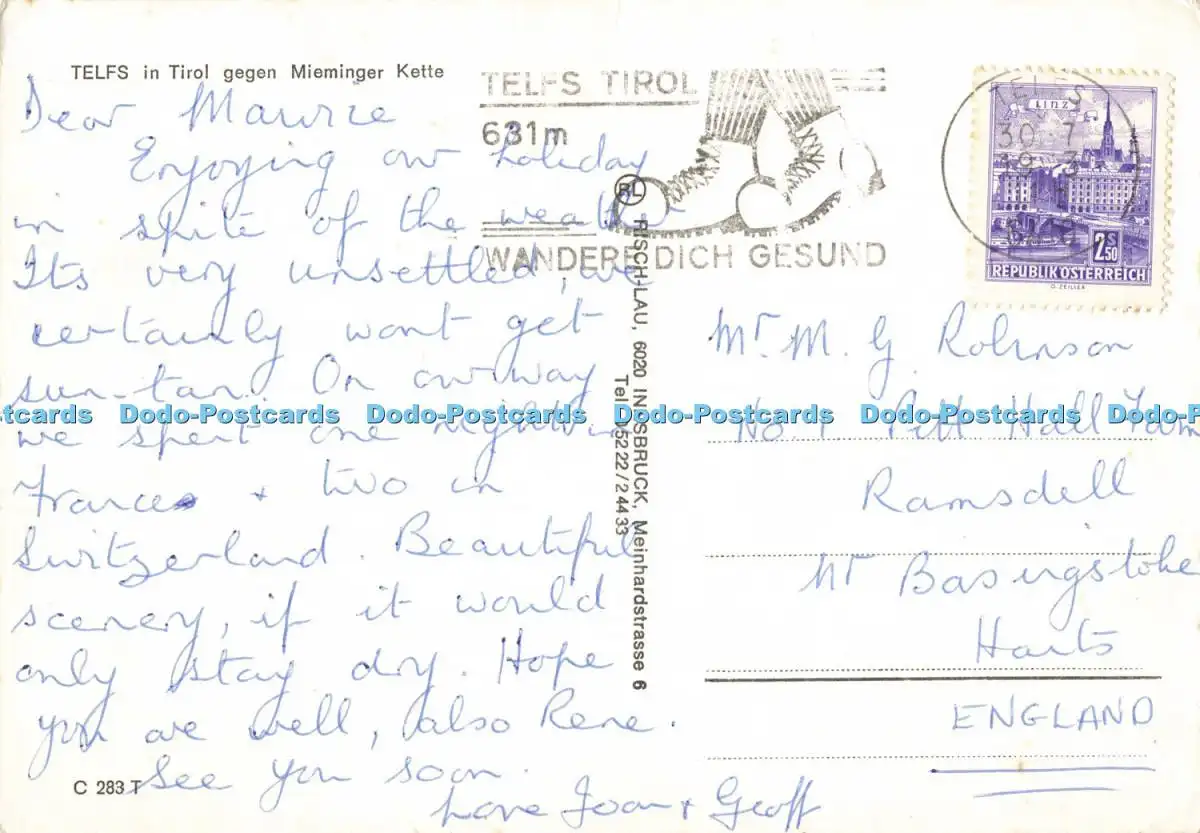 TELFS in Tirol gegen Mieminger Kette
Dear Maurice
Enjoying our holiday
in spite of the weather
Its very unsettled, we
certainly wont get
sun-tan. On our way
we spent one night in
France + two in
Switzerland. Beautiful
scenery, if it would
only stay dry. Hope
you are well, also Rene.
See you soon.
Love Joan + Geoff
C 283 T
TELFS TIROL
631m
WANDERE DICH GESUND
RL RISCH-LAU, 6020 INNSBRUCK, Meinhardstrasse 6
Tel. 05222/24433
TELFS
30.7
LINZ
2S50
REPUBLIK ÖSTERREICH
G. ZEILLER
Mr. M. G. Robinson
No. 1 Pitt Hall Farm
Ramsdell
Nr Basingstoke
Hants
ENGLAND
stcards Dodo-Postcards Dodo-Postcards Dodo-Postcards Dodo-Postcards Dodo-Post